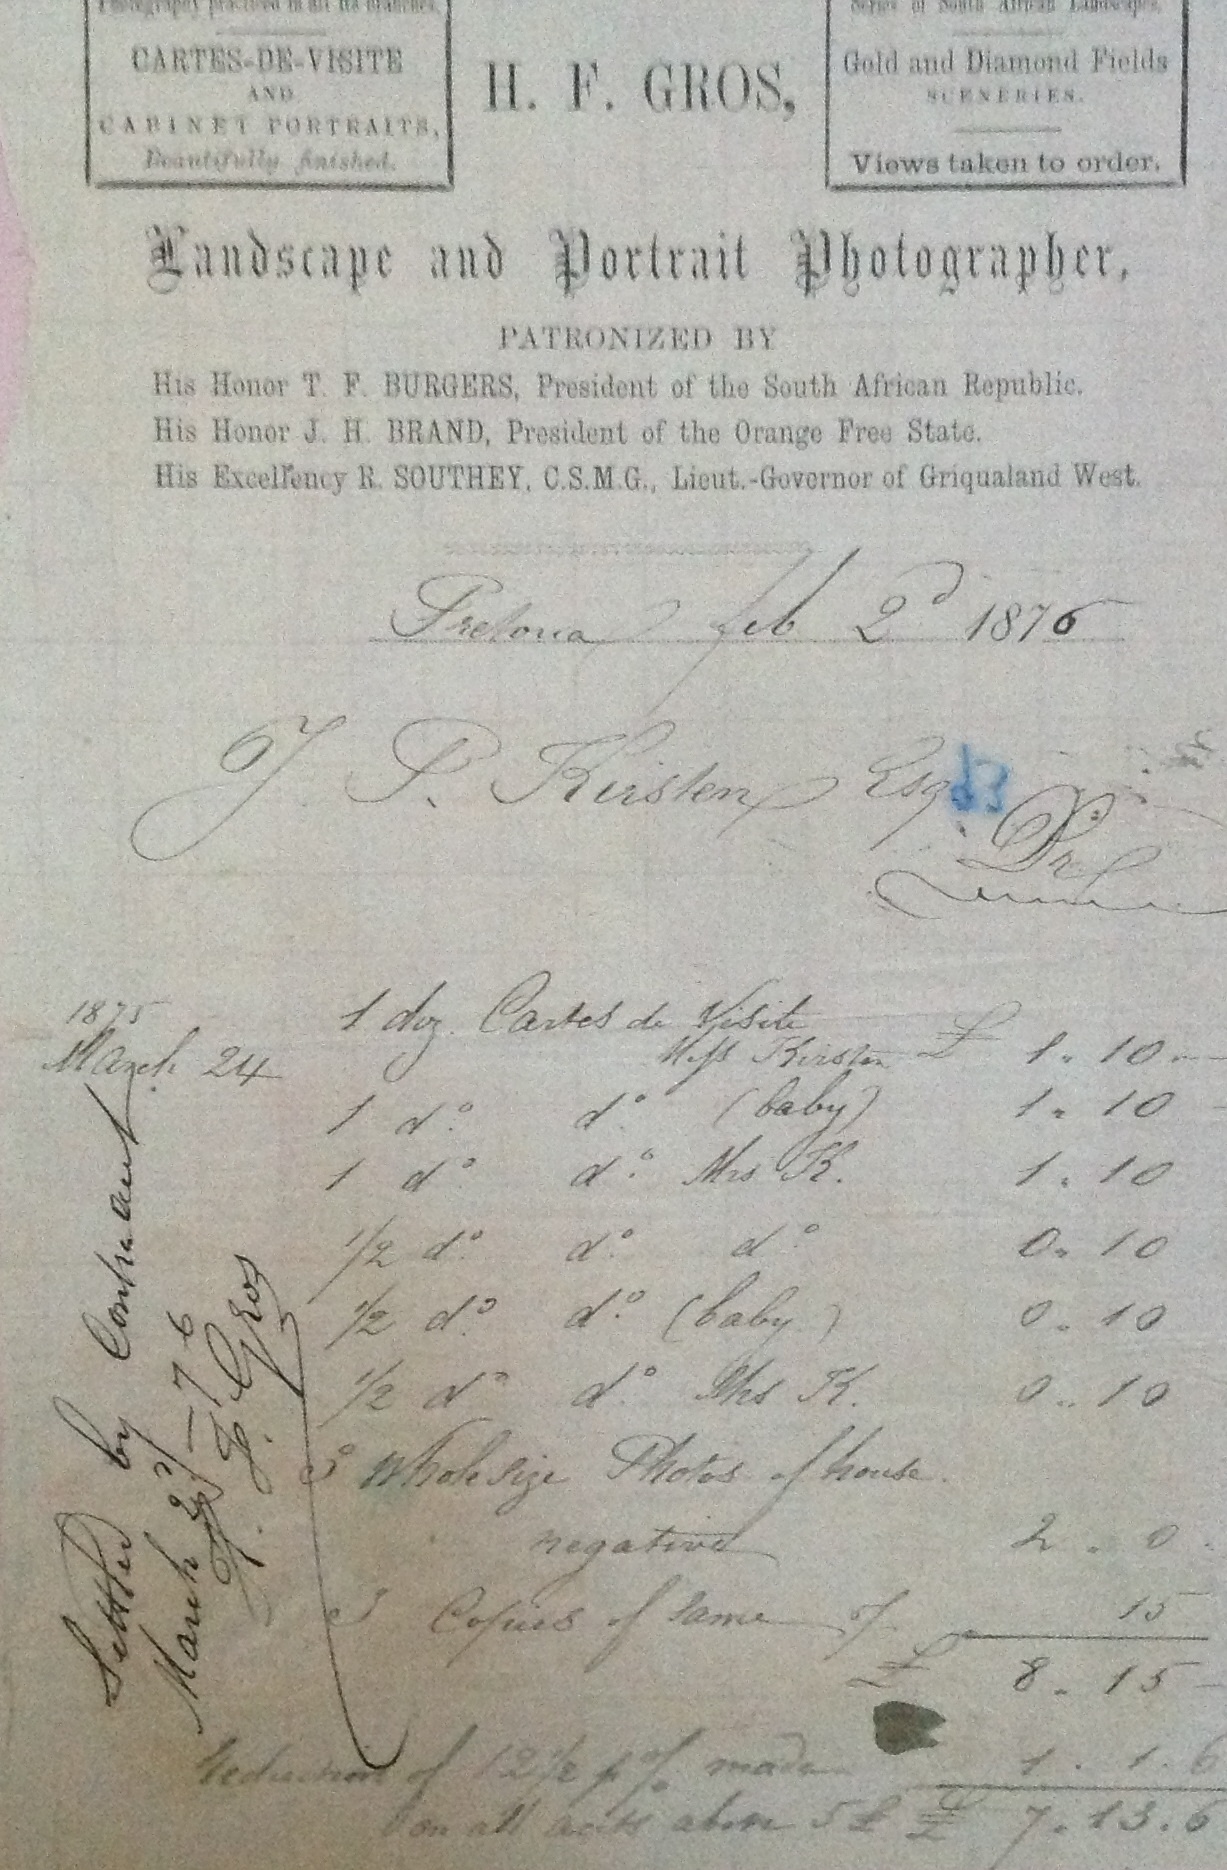 Photography practised in all its branches.
CARTES-DE-VISITE
AND
CABINET PORTRAITS,
Beautifully finished.
H. F. GROS,
Series of South African Landscapes.
Gold and Diamond Fields
SCENERIES.
Views taken to order.
Landscape and Portrait Photographer,
PATRONIZED BY
His Honor T. F. BURGERS, President of the South African Republic.
His Honor J. H. BRAND, President of the Orange Free State.
His Excellency R. SOUTHEY, C.S.M.G., Lieut.-Governor of Griqualand West.
Pretoria feb 2d 1876
J. P. Kirsten Esq
Dr
1875
March 24
1 doz. Cartes de Visite
Miss Kirsten £ 1. 10
1 do. do. (baby) 1. 10
1 do do. Mrs K. 1. 10
1/2 do. do. do 0. 10
1/2 do. do. (baby) 0. 10
1/2 do do. Mrs K. 0. 10
3 Whole size Photos of house.
negative 2. 0
3 Copies of same 15
£ 8. 15
Reduction of 12 1/2 p % made 1. 1. 6
on all accts above 5 £ £ 7. 13. 6
Settled by Contraact
March 2d/-76
H. F. Gros